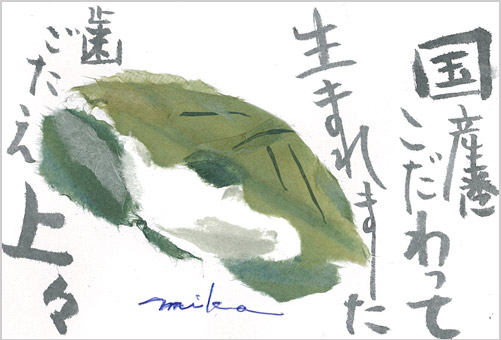 国産にこだわって
生まれました
歯ごたえ上々
mika